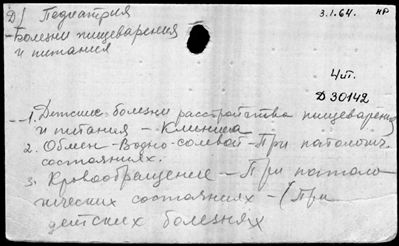 Д/ Педиатрия
3.1.64. КР
-Болезни пищеварения
и питания
4п.
Д 30142
-1. Детские болезни расстройства пищеварения
и питания - Клиника
2. Обмен - Водно-солевой - При патологич.
состояниях.
3. Кровообращение - При патоло
гических состояниях - (При
детских болезнях